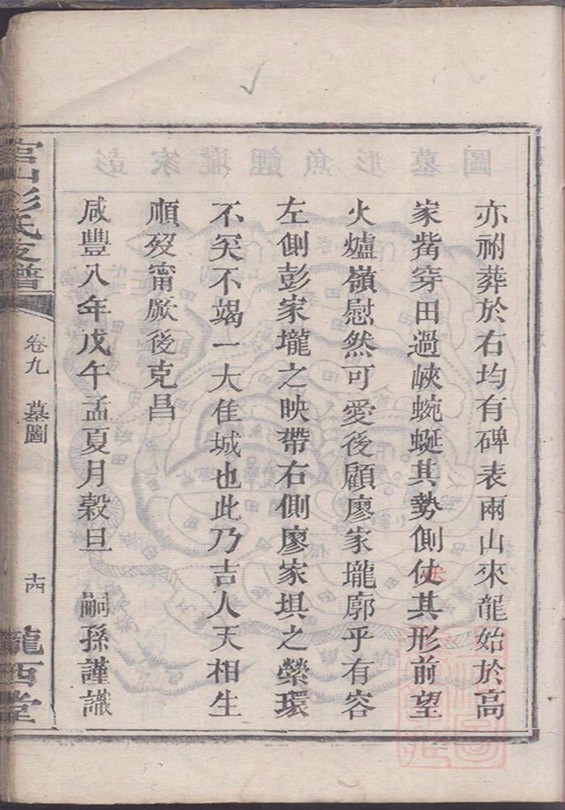 亦祔葬於右均有碑表兩山來龍始於高
家觜穿田過峽蜿蜒其勢側仗其形前望
火爐嶺慰然可愛後顧廖家壠廓乎有容
左側彭家壠之映帶右側廖家垻之縈環
不矣不竭一大隹城也此乃吉人天相生
順歿甯厥後克昌
咸豐八年戊午孟夏月穀旦 嗣孫謹識
官山彭氏支譜
卷九 墓圖
十四
隴西堂
彭家壠鯉魚形墓圖